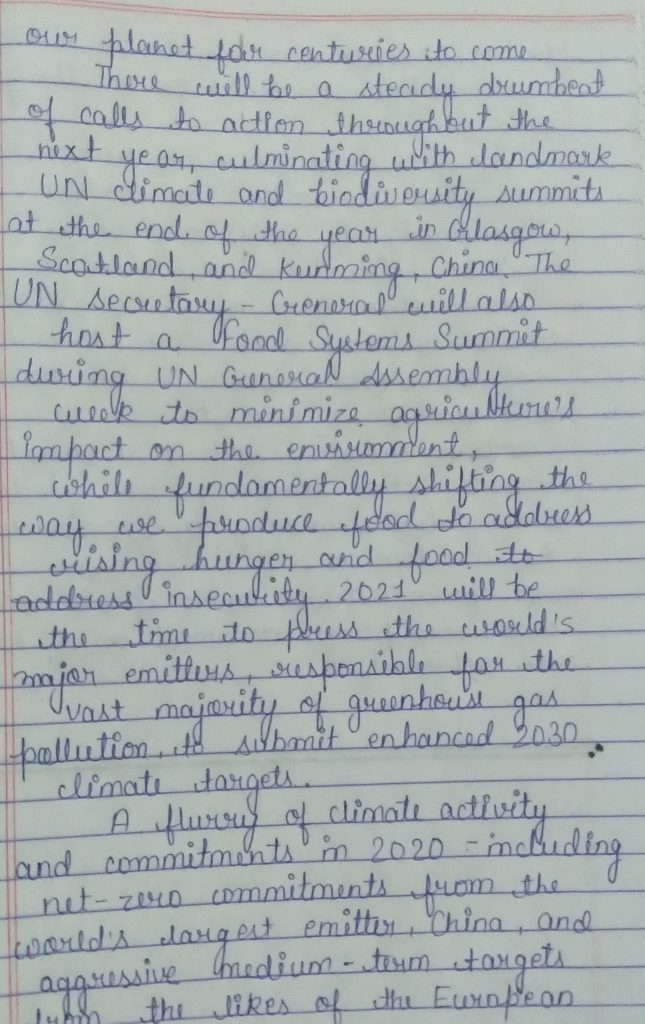 our planet for centuries to come
There will be a steady drumbeat
of calls to action throughout the
next year, culminating with landmark
UN climate and biodiversity summits
at the end of the year in Glasgow,
Scotland, and Kunming, China. The
UN Secretary-General will also
host a Food Systems Summit
during UN General Assembly
week to minimize agriculture's
impact on the environment,
while fundamentally shifting the
way we produce food to address
rising hunger and food to
address insecurity. 2021 will be
the time to press the world's
major emitters, responsible for the
vast majority of greenhouse gas
pollution, to submit enhanced 2030
climate targets.
A flurry of climate activity
and commitments in 2020 - including
net-zero commitments from the
world's largest emitter, China, and
aggressive medium-term targets
from the likes of the European